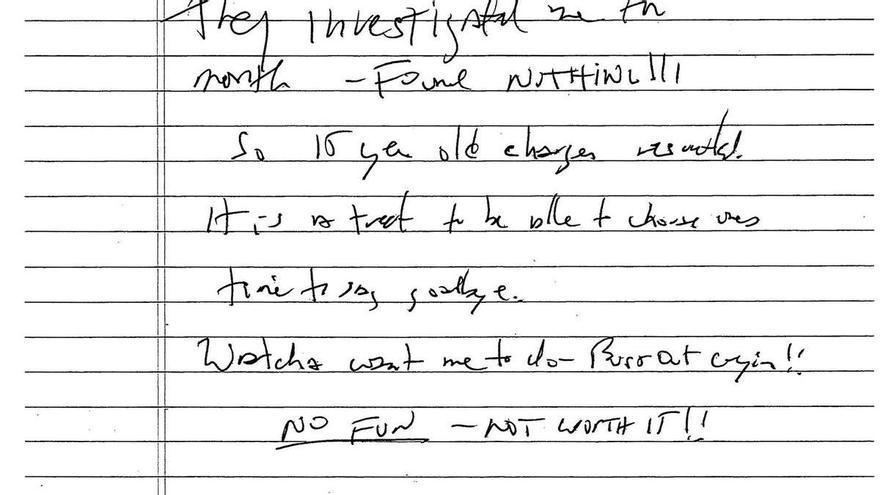 They investigated me
month — Found NOTHING!!!
So year old charges
It is a treat to be able to choose ones
time to say goodbye.
Watcha want me to do — Bust out cryin!!
NO FUN — NOT WORTH IT!!